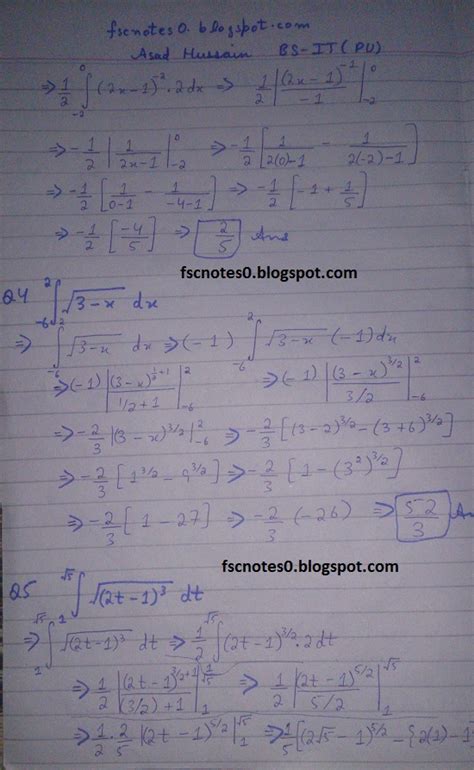 fscnotes0.blogspot.com
Asad Hussain BS-IT (PU)
⇒ 1/2 ∫_{-2}^{0} (2x-1)^{-2} · 2dx ⇒ 1/2 |(2x-1)^{-1}/-1|_{-2}^{0}
⇒ -1/2 |1/(2x-1)|_{-2}^{0} ⇒ -1/2 [1/(2(0)-1) - 1/(2(-2)-1)]
⇒ -1/2 [1/(0-1) - 1/(-4-1)] ⇒ -1/2 [-1 + 1/5]
⇒ -1/2 [-4/5] ⇒ 2/5 Ans
fscnotes0.blogspot.com
Q4 ∫_{-6}^{2} √(3-x) dx
⇒ ∫_{-6}^{2} √(3-x) dx ⇒ (-1) ∫_{-6}^{2} √(3-x) (-1)dx
⇒ (-1) |(3-x)^{1/2+1}/(1/2+1)|_{-6}^{2} ⇒ (-1) |(3-x)^{3/2}/(3/2)|_{-6}^{2}
⇒ -2/3 |(3-x)^{3/2}|_{-6}^{2} ⇒ -2/3 [(3-2)^{3/2} - (3+6)^{3/2}]
⇒ -2/3 [1^{3/2} - 9^{3/2}] ⇒ -2/3 [1 - (3^2)^{3/2}]
⇒ -2/3 [1 - 27] ⇒ -2/3 (-26) ⇒ 52/3 An
fscnotes0.blogspot.com
Q5 ∫_{1}^{√5} √(2t-1)^3 dt
⇒ ∫_{1}^{√5} √(2t-1)^3 dt ⇒ 1/2 ∫_{1}^{√5} (2t-1)^{3/2} · 2dt
⇒ 1/2 |(2t-1)^{3/2+1}/((3/2)+1)|_{1}^{√5} ⇒ 1/2 |(2t-1)^{5/2}/(5/2)|_{1}^{√5}
⇒ 1/2 · 2/5 |(2t-1)^{5/2}|_{1}^{√5} ⇒ 1/5 [(2√5-1)^{5/2} - {2(1)-1